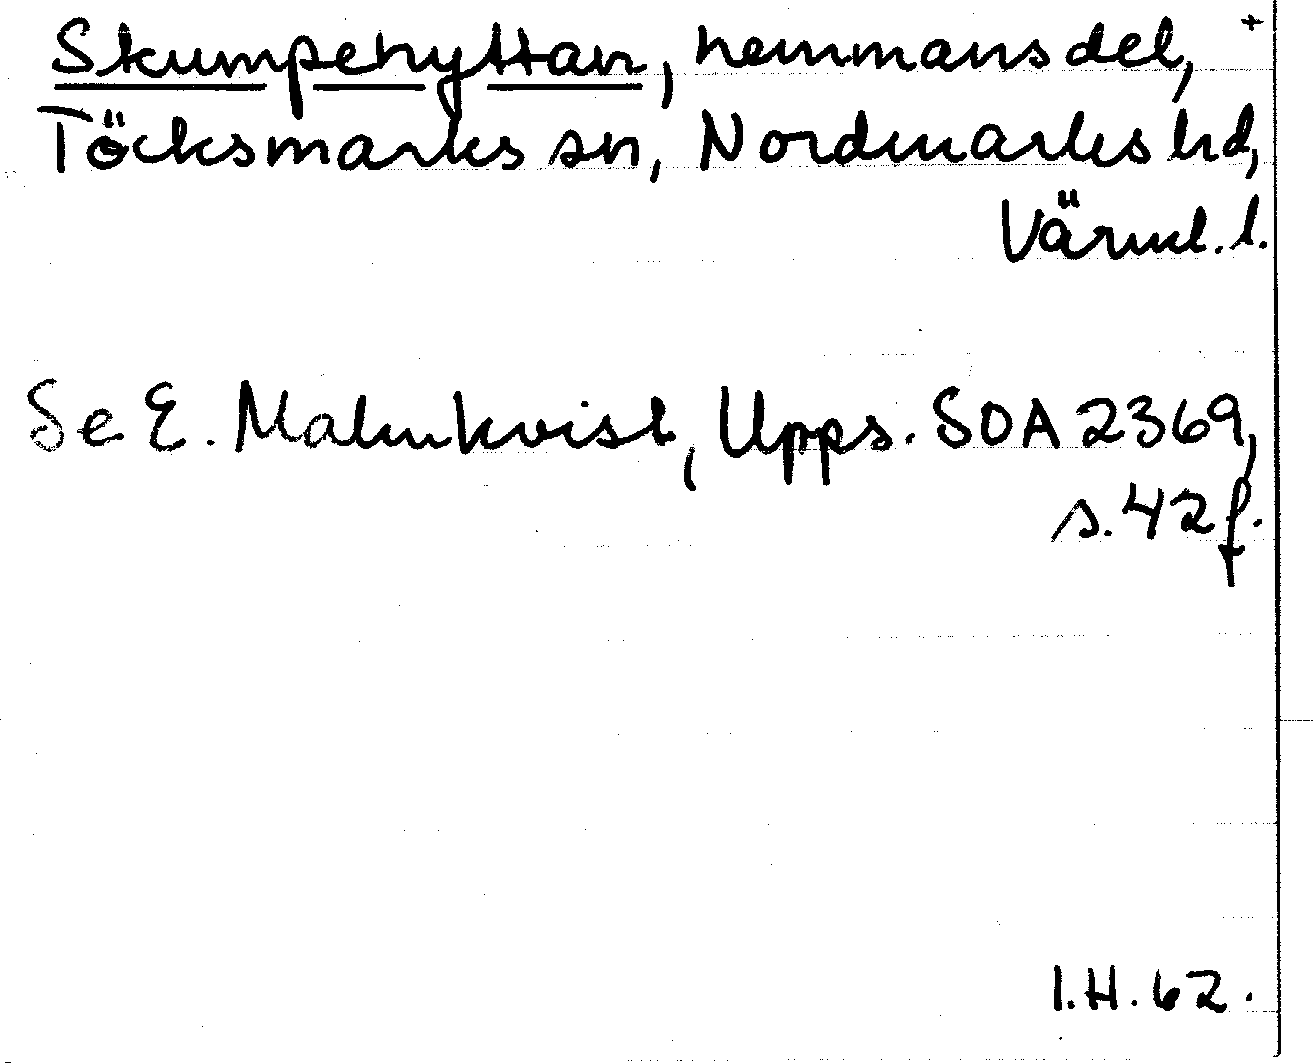 Skumpehyttan, hemmansdel, +
Töcksmarks sn, Nordmarks hd,
Värml. l.
Se E. Malmkvist, Upps. SOA 2369,
s. 42 f.
I.H. 62.